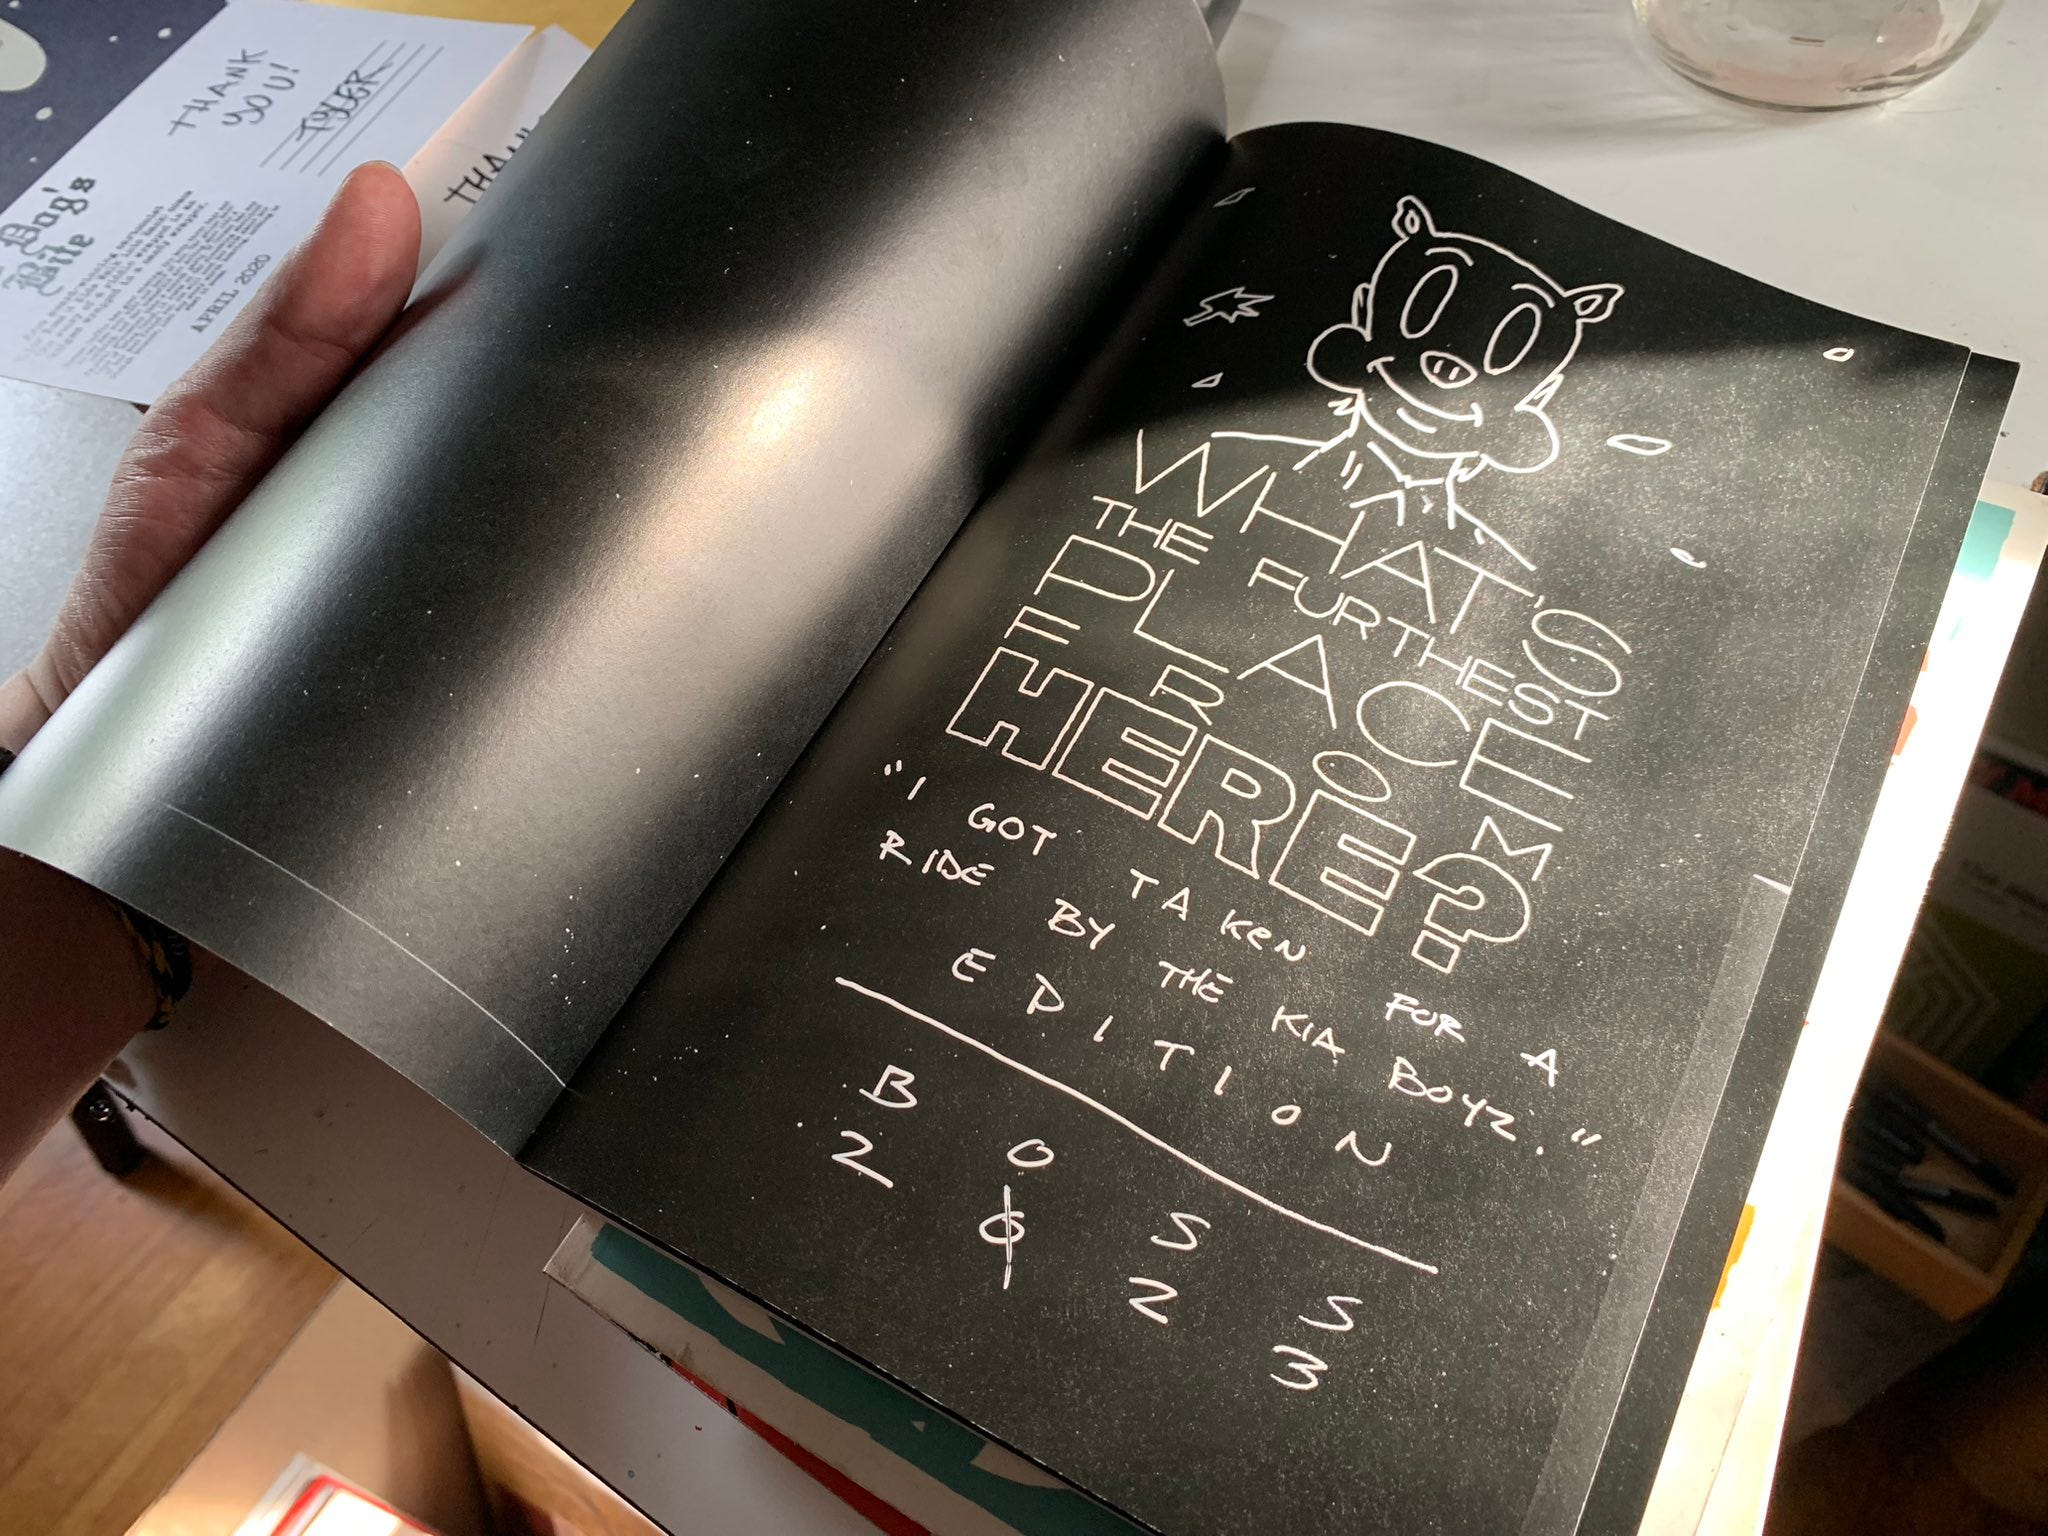 THANK
YOU!
TYLER
Dog's
Bite
APRIL 2020
WHAT'S
THE FURTHEST
PLACE
FROM
HERE?
"I GOT TAKEN FOR A
RIDE BY THE KIA BOYZ."
EDITION
BOSS
2023